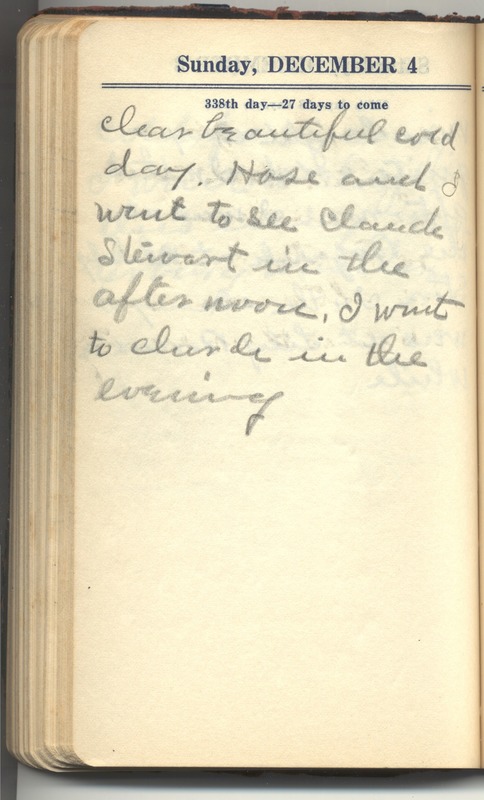 Sunday, DECEMBER 4
338th day—27 days to come
clear beautiful cold
day. Hose and I
went to see Claude
Stewart in the
afternoon, I went
to church in the
evening